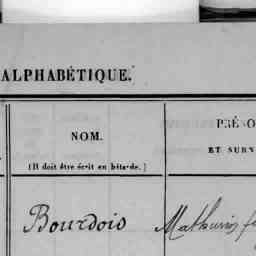 ALPHABÉTIQUE.
NOM.
(Il doit être écrit en bâtarde.)
PRÉNO
ET SURN
Bourdois
Mathurin